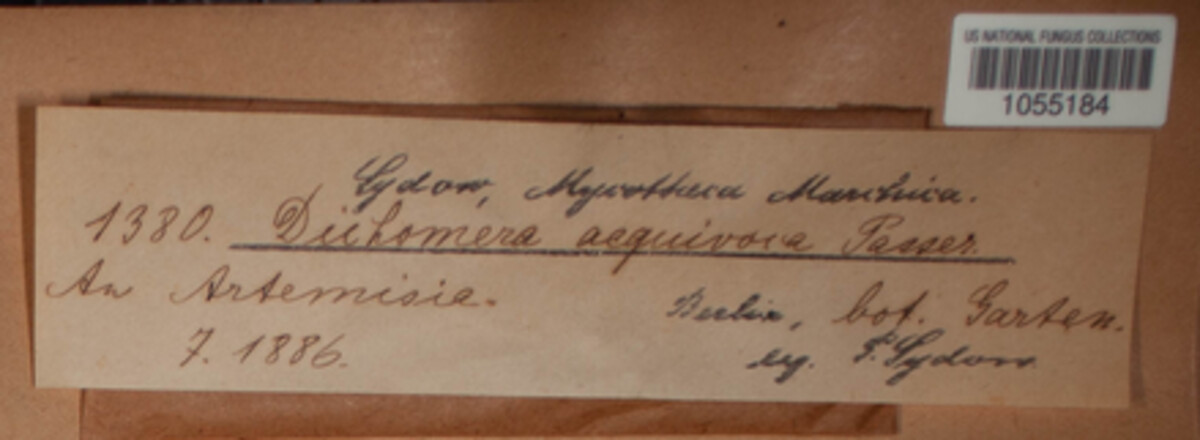 US NATIONAL FUNGUS COLLECTIONS
1055184
Sydow, Mycotheca Marchica.
1380. Dichomera aequivoca Passer.
An Artemisia.
Berlin, bot. Garten.
7. 1886.
leg. P. Sydow